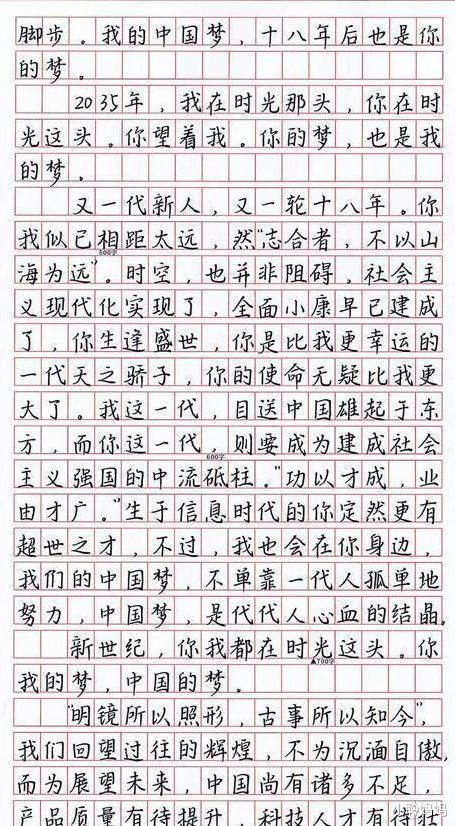 脚步。我的中国梦，十八年后也是你
的梦。
2035年，我在时光那头，你在时
光这头。你望着我。你的梦，也是我
的梦。
又一代新人，又一轮十八年。你
我似已相距太远，然“志合者，不以山
500字
海为远”。时空，也并非阻碍。社会主
义现代化实现了，全面小康早已建成
了，你生逢盛世，你是比我更幸运的
一代天之骄子，你的使命无疑比我更
大了。我这一代，目送中国雄起于东
方，而你这一代，则要成为建成社会
600字
主义强国的中流砥柱。“功以才成，业
由才广。”生于信息时代的你定然更有
超世之才，不过，我也会在你身边，
我们的中国梦，不单靠一代人孤单地
努力，中国梦，是代代人心血的结晶。
新世纪，你我都在时光这头。你
▲700字
我的梦，中国的梦。
“明镜所以照形，古事所以知今”，
我们回望过往的辉煌，不为沉湎自傲，
而为展望未来，中国尚有诸多不足，
产品质量有待提升，科技人才有待壮
小聆妈妈